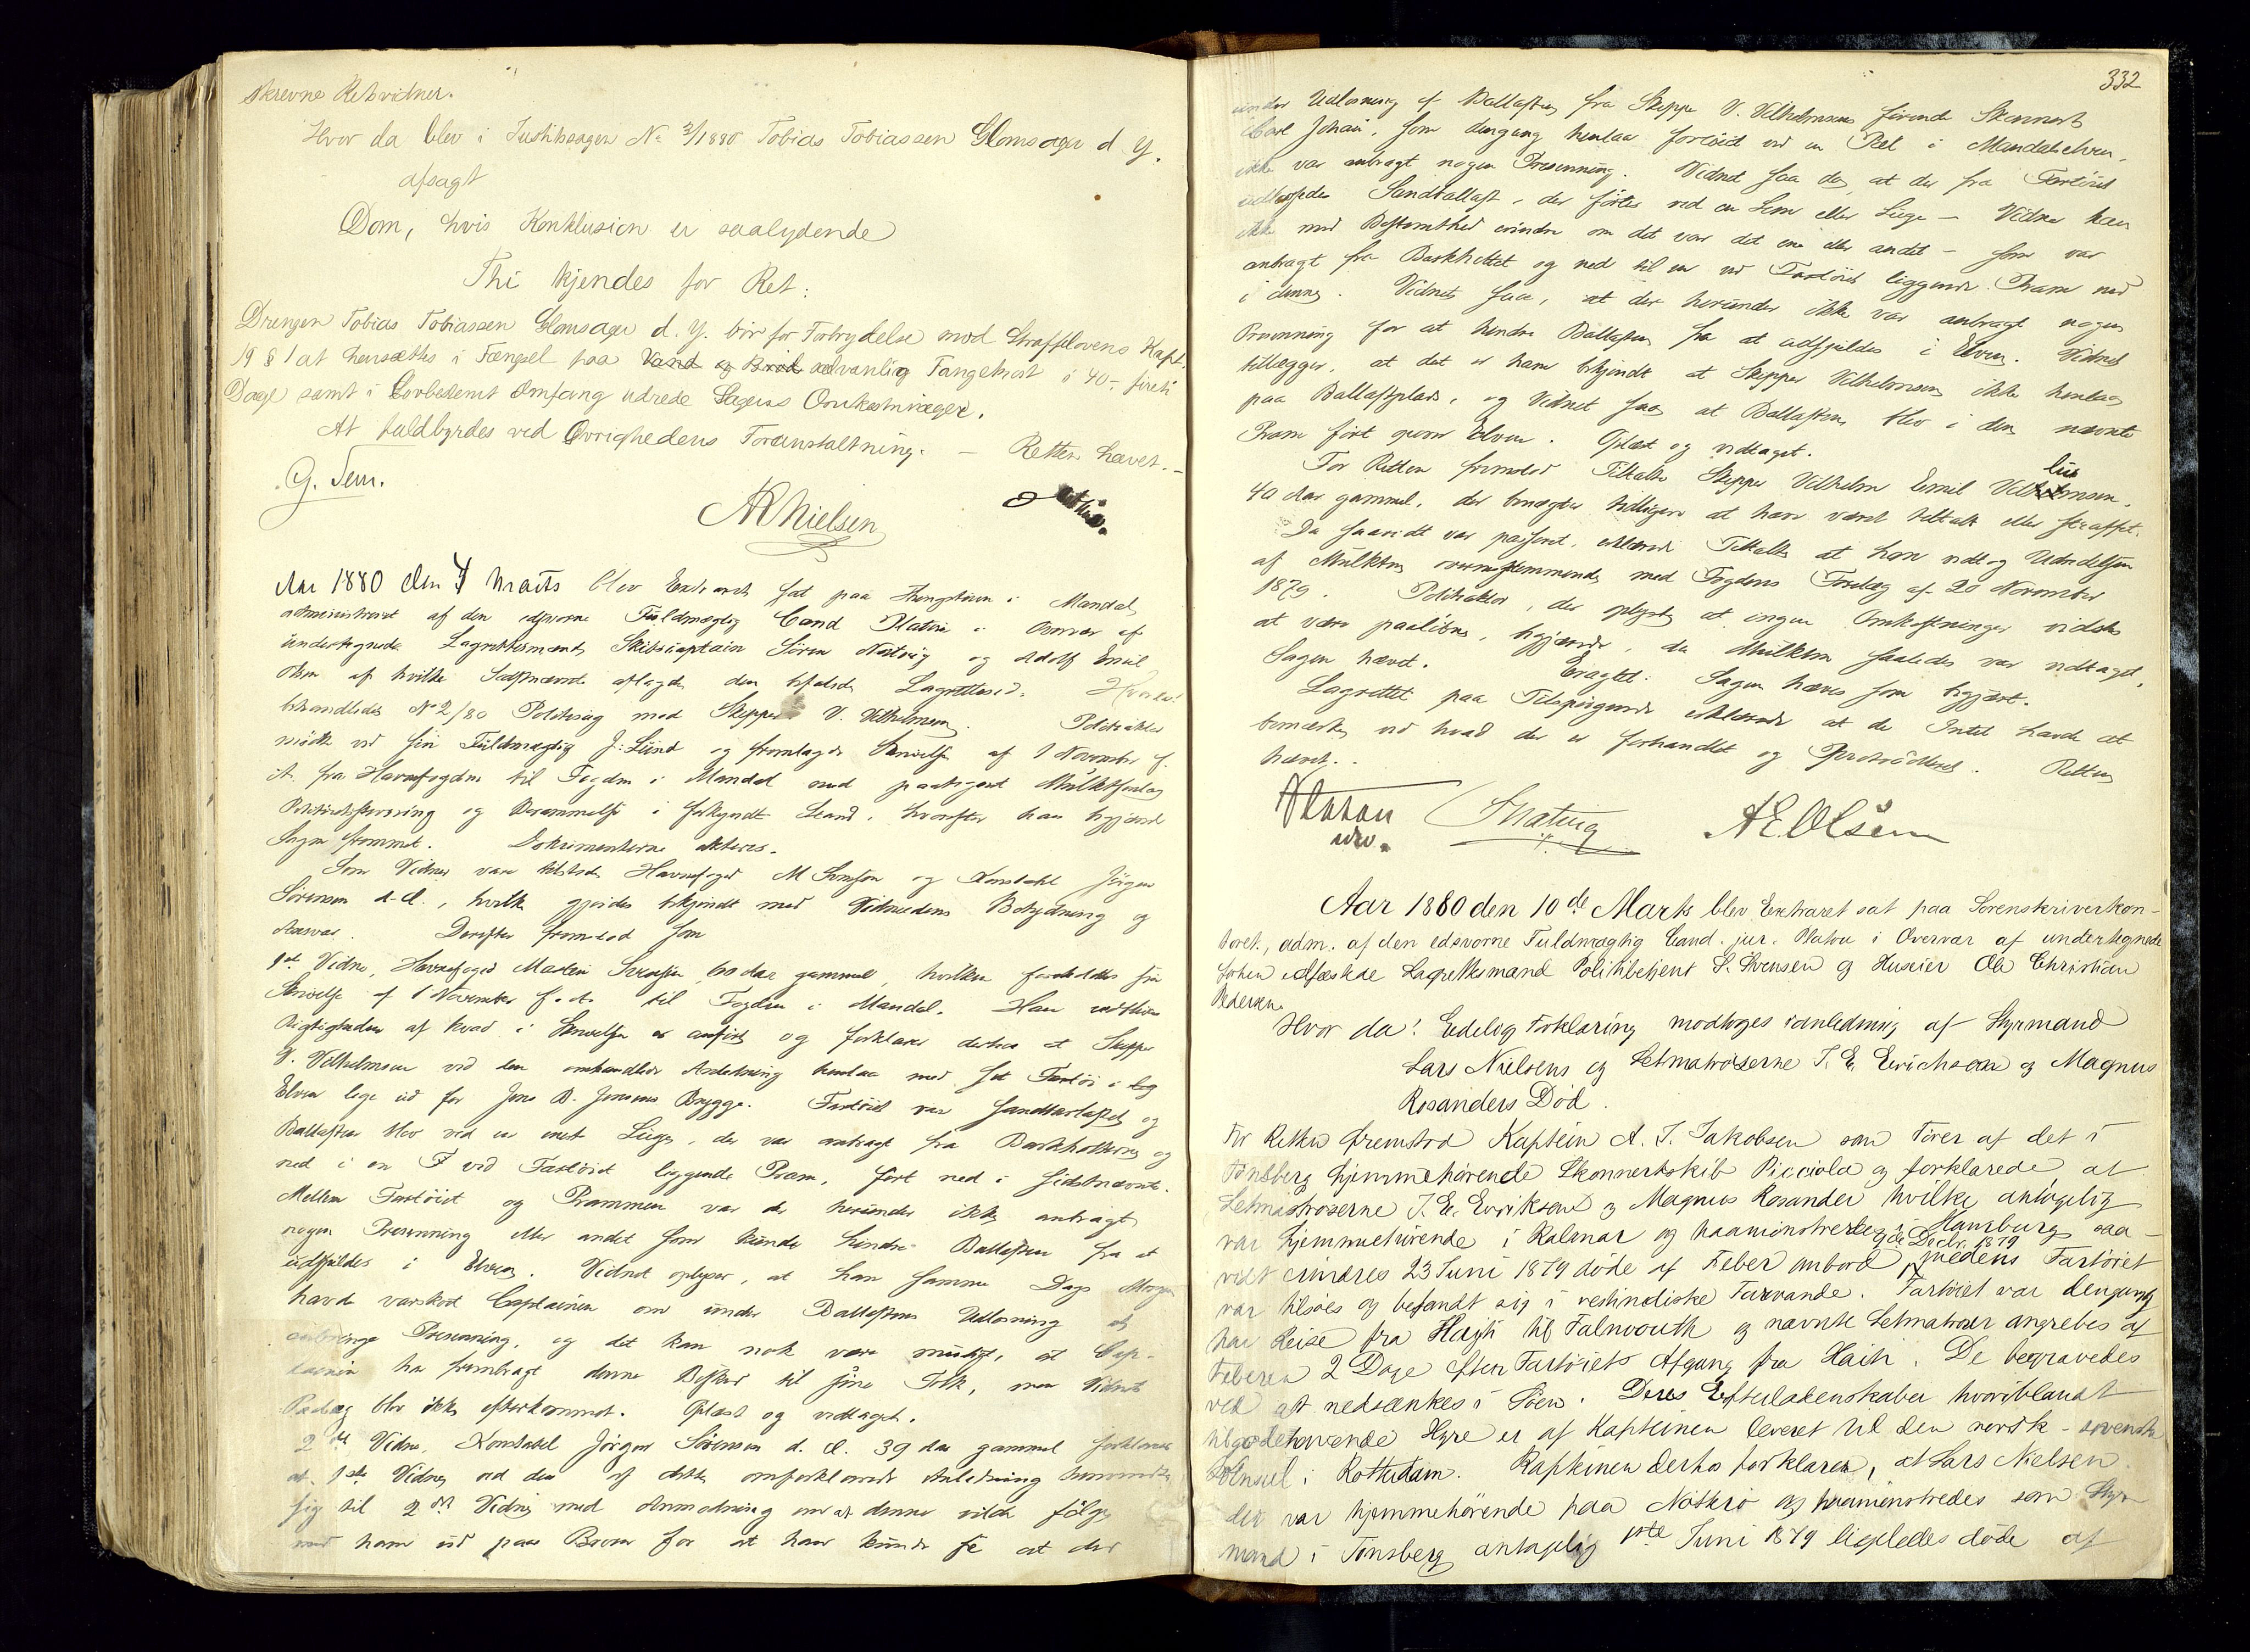 skrevne Retsvidner.
Hvor da blev i Justitssagen No 3/1880 Tobias Tobiassen Glomsager d. y.
afsagt
Dom, hvis Konklusion er saalydende
Thi kjendes for Ret:
Drengen Tobias Tobiassen Glomsager d. y. bør for Forbrydelse mod Straffelovens Kapt.
19 § 1 at hensættes i Fængsel paa Vand og Brød sedvanlig Fangekost i 40- firti
Dage samt i lovbestemt Omfang udrede Sagens Omkostninger.
At fuldbyrdes ved Øvrighedens Foranstaltning. — Retten hævet. —
G. Sem.
AR Nielsen
Aar 1880 den 4 Marts blev Extraret sat paa Thingstuen i Mandal
administreret af den edsvorne Fuldmægtig Cand Platou i Overvær af
undertegnede Lagrettesmænd Skibscaptain Søren Natvig og Adolf Emil
Olsen af hvilke Sidstnævnte aflagde den befalede Lagretteed. Hvorda
behandledes No 2/80 Politisag mod Skipper V. Vilhelmsen. Politiaktor
mødte ved sin Fuldmægtig J. Lund og fremlagde Skrivelse af 1 November f.
A. fra Havnefogden til Fogden i Mandal med paategnet Mulktforelæg
Politiretsstevning og Berammelse i forkyndt Stand, hvorefter han begjærede
Sagen fremmet. Dokumenterne akteres.
Som Vidner var tilstede Havnefoged M Svensen og Konstabel Jørgen
Sørensen d. Æ., hvilke gjordes bekjendt med Vidneedens Betydning og
Ansvar. Derefter fremstod som
1ste Vidne, Havnefoged Martin Svensen, 60 Aar gammel, hvilken foreholdtes sin
Skrivelse af 1 November f. A. til Fogden i Mandal. Han vedstaar
Rigtigheden af hvad i Skrivelsen er anført og forklarer derhos at Skipper
V. Vilhelmsen ved den omhandlede Anledning henlaa med sit Fartøi i
Elven lige ud for Jens B. Jensens Brygge. Fartøiet var sandbarlastet og
Ballasten blev ved en med Luge, der var anbragt fra Barkholterne og
ned i en ved Fartøiet liggende Pram, ført ned i sidstnævnte.
Mellem Fartøiet og Prammen var der herunder ikke anbragt
nogen Presenning eller andet som kunde hindre Ballasten fra at
udspildes i Elven. Vidnet oplyser, at han samme Dags Morgen
havde varskoet Captainen om under Ballastens Udlosning at
anbringe Presenning, og det kan nok være muligt, at Cap-
tainen har frembragt denne Besked til sine Folk, men Vidnets
Paalæg blev ikke efterkommet. Oplæst og vedtaget.
2det Vidne, Konstabel Jørgen Sørensen d. Æ. 39 Aar gammel forklarer
at 1ste Vidne ved den af dette omforklarede Anledning henvendte
sig til 2det Vidne med Anmodning om at denne vilde følge
med ham ud paa Broen for at han kunde se at der
332
under Udlosning af Ballasten fra Skipper V. Vilhelmsens førende Skonnert
Carl Johan, som dengang henlaa fortøiet ved en Pæl i Mandalselven,
ikke var anbragt nogen Presenning. Vidnet saa da, at der fra Fartøiet
udlossedes Sandballast, der førtes ved en Lem eller Luge — Vidnet kan
ikke med Bestemthed erindre om det var det ene eller andet — som var
anbragt fra Barkholtet og ned til en ved Fartøiet liggende Pram ned
i denne. Vidnet saa, at der herunder ikke var anbragt nogen
Presenning for at hindre Ballasten fra at udspildes i Elven. Vidnet
tillægger, at det er ham bekjendt at Skipper Vilhelmsen ikke henlaa
paa Ballastplads, og Vidnet saa at Ballasten blev i den nævnte
Pram ført over Elven. Oplæst og vedtaget.
For Retten fremstod Tiltalte Skipper Vilhelm Emil Vilhelmsen,
40 Aar gammel, der benægter tidligere at have været tiltalt eller straffet.
Da saavidt var passeret, erklærede Tiltalte at han vedtog Udredelsen
af Mulkten overensstemmende med Fogdens Forelæg af 20 November
1879. Politiaktor, der oplyste at ingen Omkostninger vidstes
at være paaløbne, begjærede, da Mulkten saaledes var vedtaget,
Sagen hævet. Eragtet: Sagen hæves som begjært.
Lagrettet paa Tilspørgende erklærede at de Intet havde at
bemærke ved hvad der er forhandlet og protokolleret. Retten
hævet.
Platou S Natvig A E Olsen
edsv.
Aar 1880 den 10de Marts blev Extraret sat paa Sorenskriverkon-
toret, adm. af den edsvorne Fuldmægtig Cand. jur. Platou i Overvær af undertegnede
forhen edfæstede Lagrettesmænd Politibetjent S. Svensen og Huseier Ole Christian
Pedersen
Hvor da: Edelig Forklaring modtoges i anledning af Styrmand
Lars Nielsens og Letmatroserne J. E. Erichsen og Magnus
Rosanders Død.
For Retten fremstod Kaptein A. J. Jakobsen som Fører af det i
Tønsberg hjemmehørende Skonnertskib Picciola og forklarede at
Letmatroserne J. E. Erikson og Magnus Rosander hvilke antagelig
var hjemmehørende i Kalmar og paamønstredes i Hamburg saa-
vidt erindres 23 Juni 1879 døde af Feber ombord 9de Decbr. 1879 medens Fartøiet
var tilsøes og befandt sig i vestindiske Farvande. Fartøiet var dengang
paa Reise fra Hayti til Falmouth og nævnte Letmatroser angrebes af
Feberen 2 Dage efter Fartøiets Afgang fra Haiti. De begravedes
ved at nedsænkes i Søen. Deres Efterladenskaber hvoriblandt
tilgodehavende Hyre er af Kapteinen leveret til den norsk-svenske
Konsul i Rotterdam. Kapteinen derhos forklarer, at Lars Nielsen
der var hjemmehørende paa Nøtterø og paamønstredes som Styr-
mand i Tønsberg antagelig 1ste Juni 1879 ligeledes døde af